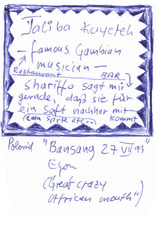 Jaliba Kuyateh
- famous Gambian
- musician -
Restaurant BAR
Shariffo sagt mir
gerade, daß sie für
ein Saft nachher mit
(ein Sprite etc) kommt
Polaroid "Bansang 27 VII 93"
Egon
("Great crazy
African mouth")